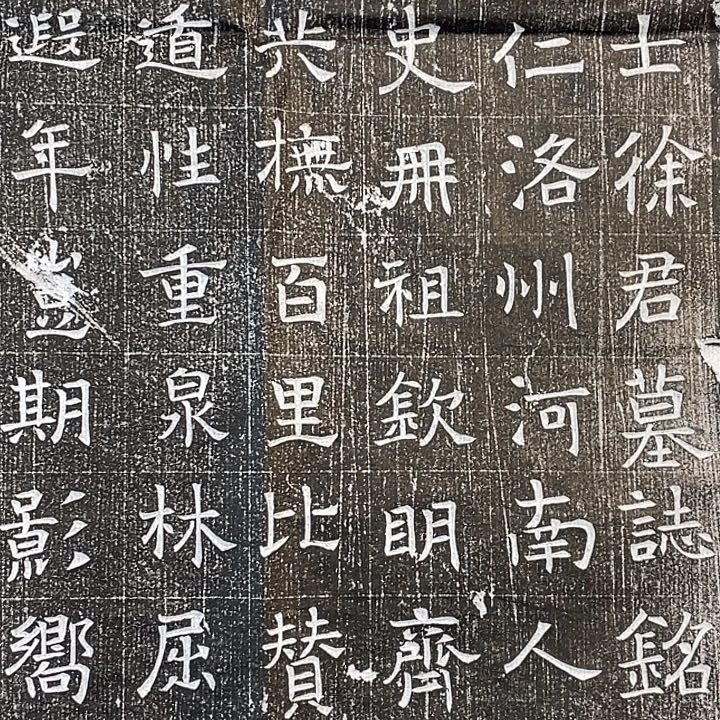 士徐君墓誌銘
仁洛州河南人
史冊祖欽明齊
共橅百里比賛
遁性重泉林屈
遐年豈期影嚮